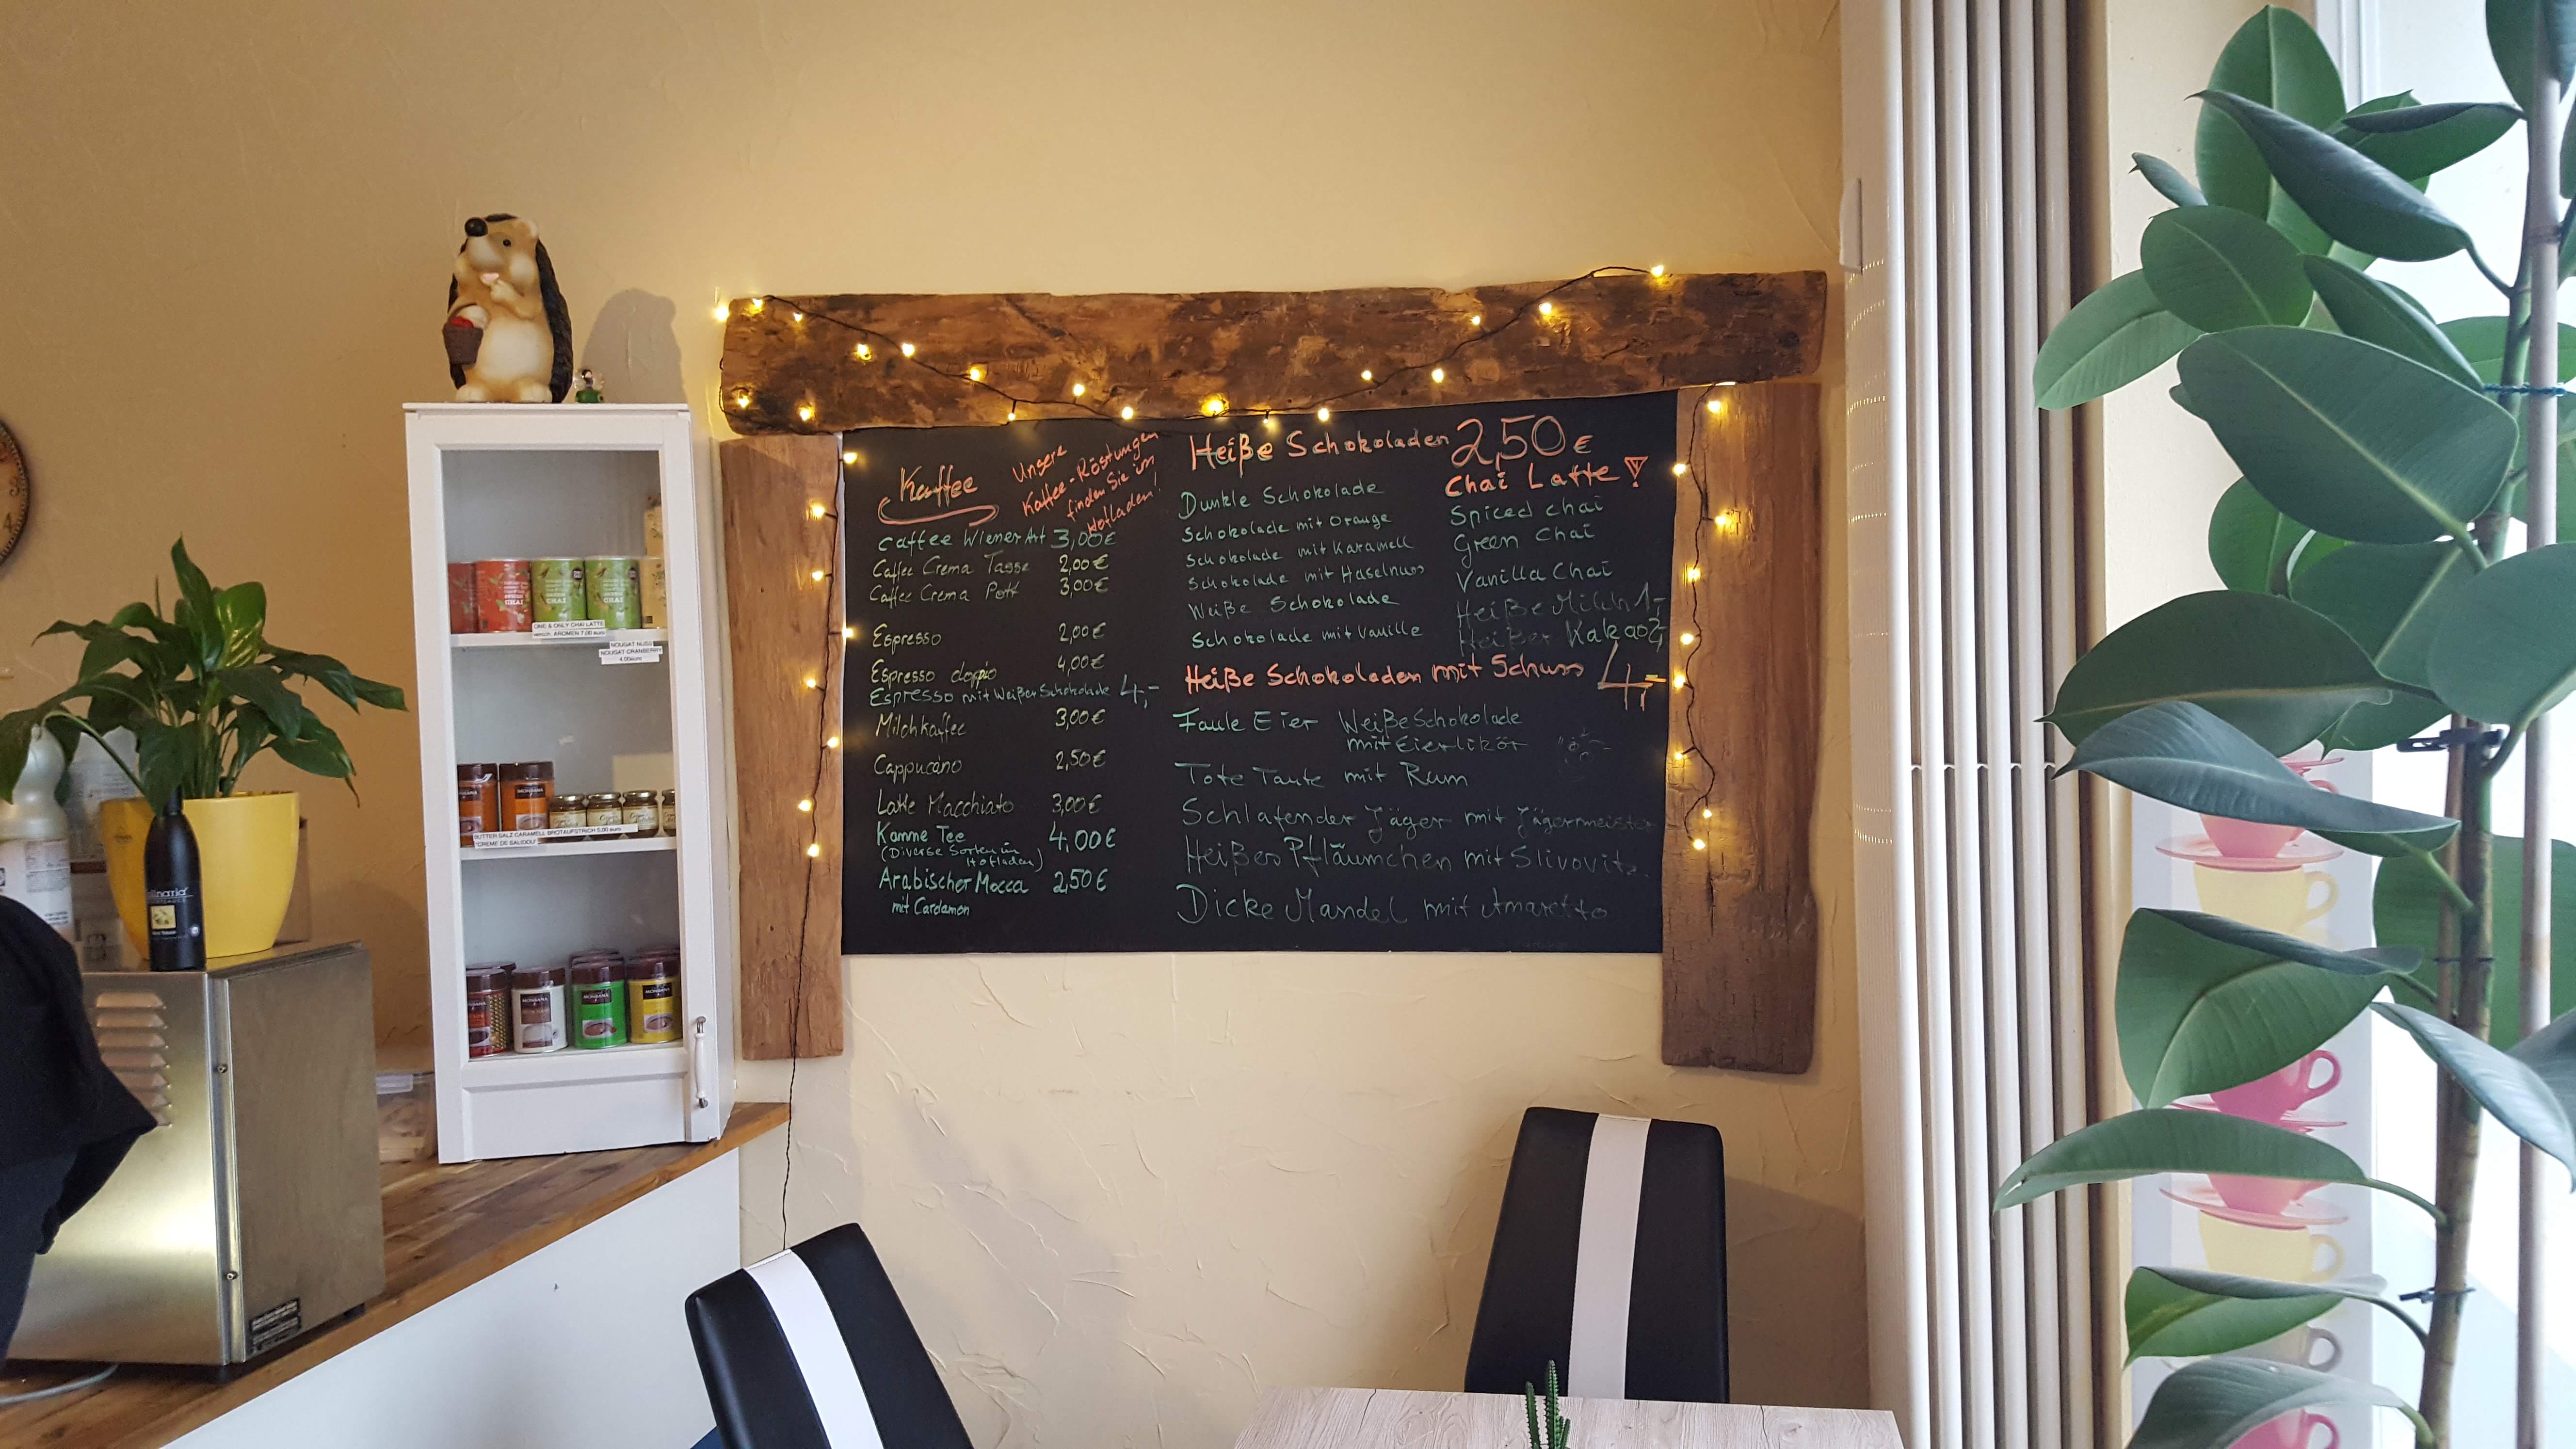 Kaffee
Unsere
Kaffee-Röstungen
finden Sie im
Hofladen!
Caffee Wiener Art 3,00€
Caffee Crema Tasse 2,00€
Caffee Crema Pott 3,00€
Espresso 2,00€
Espresso doppio 4,00€
Espresso mit Weißer Schokolade 4,-
Milchkaffee 3,00€
Cappucano 2,50€
Latte Macchiato 3,00€
Kanne Tee 4,00€
(Diverse Sorten im
Hofladen)
Arabischer Mocca 2,50€
mit Cardamon
Heiße Schokoladen 2,50€
Dunkle Schokolade
Schokolade mit Orange
Schokolade mit Karamell
Schokolade mit Haselnuss
Weiße Schokolade
Schokolade mit Vanille
Chai Latte!
Spiced chai
Green Chai
Vanilla Chai
Heiße Milch 1,-
Heißer Kakao 2,-
Heiße Schokoladen mit Schuss 4,-
Faule Eier Weiße Schokolade
mit Eierlikör
Tote Tante mit Rum
Schlafender Jäger mit Jägermeister
Heißes Pfläumchen mit Slivovitz
Dicke Mandel mit Amaretto
ONE & ONLY CHAI LATTE
versch. AROMEN 7,00 euro
NOUGAT NUSS
NOUGAT CRANBERRY
4,00euro
BUTTER SALZ CARAMELL BROTAUFSTRICH 5,00 euro
CHAI
CHAI
CHAI
MONBANA
MONBANA
MONBANA
MONBANA
4